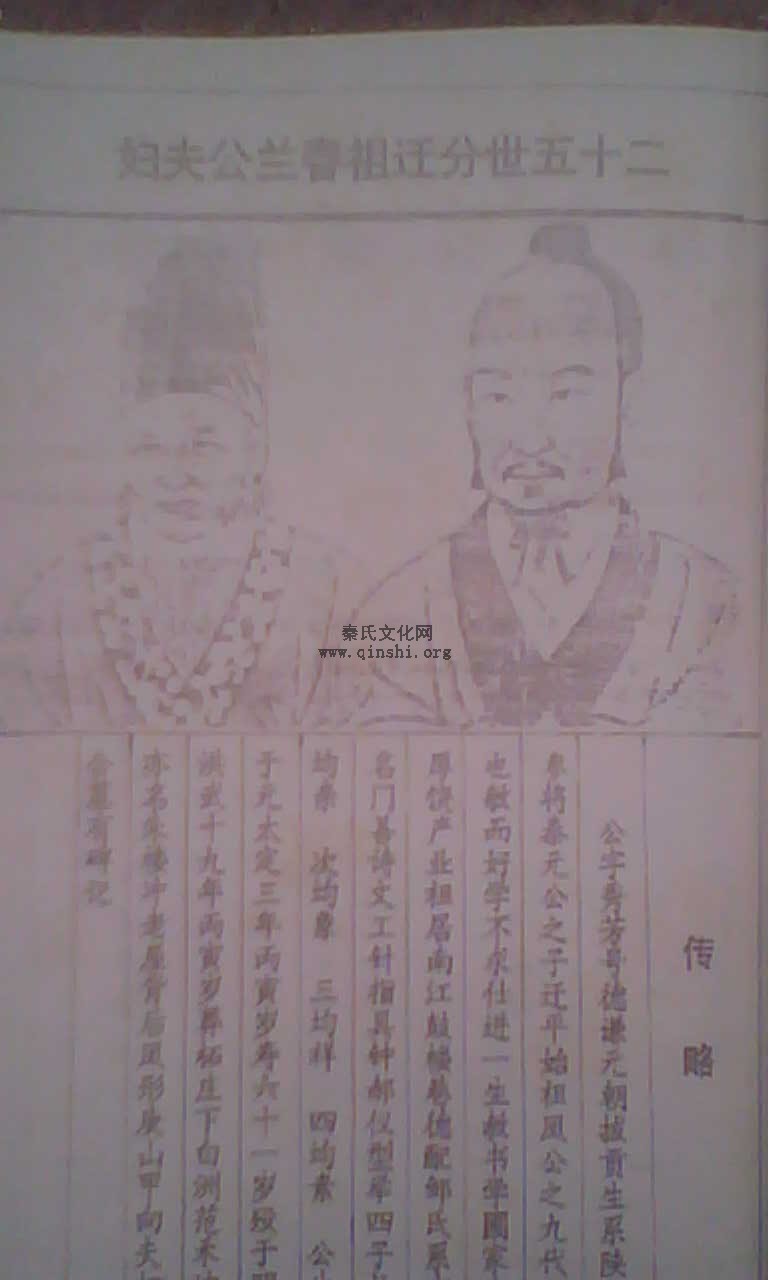 二十五世分迁祖馨兰公夫妇
秦氏文化网
www.qinshi.org
传略
公字秀芳号德谦元朝拔贡生系陕
秦将秦元公之子迁平始祖凤公之九代
也敏而好学不求仕进一生教书学圃家
厚饶产业祖居南江鼓楼巷德配邹氏系
名门善诗文工针指具钟郝仪型举四子
均泰 次均象 三均祥 四均素 公
于元太定三年丙寅岁寿六十一岁殁于明
洪武十九年丙寅岁葬柘庄下白洲范
亦名朱楼冲老屋背后凤形庚山甲向夫
合墓有碑记